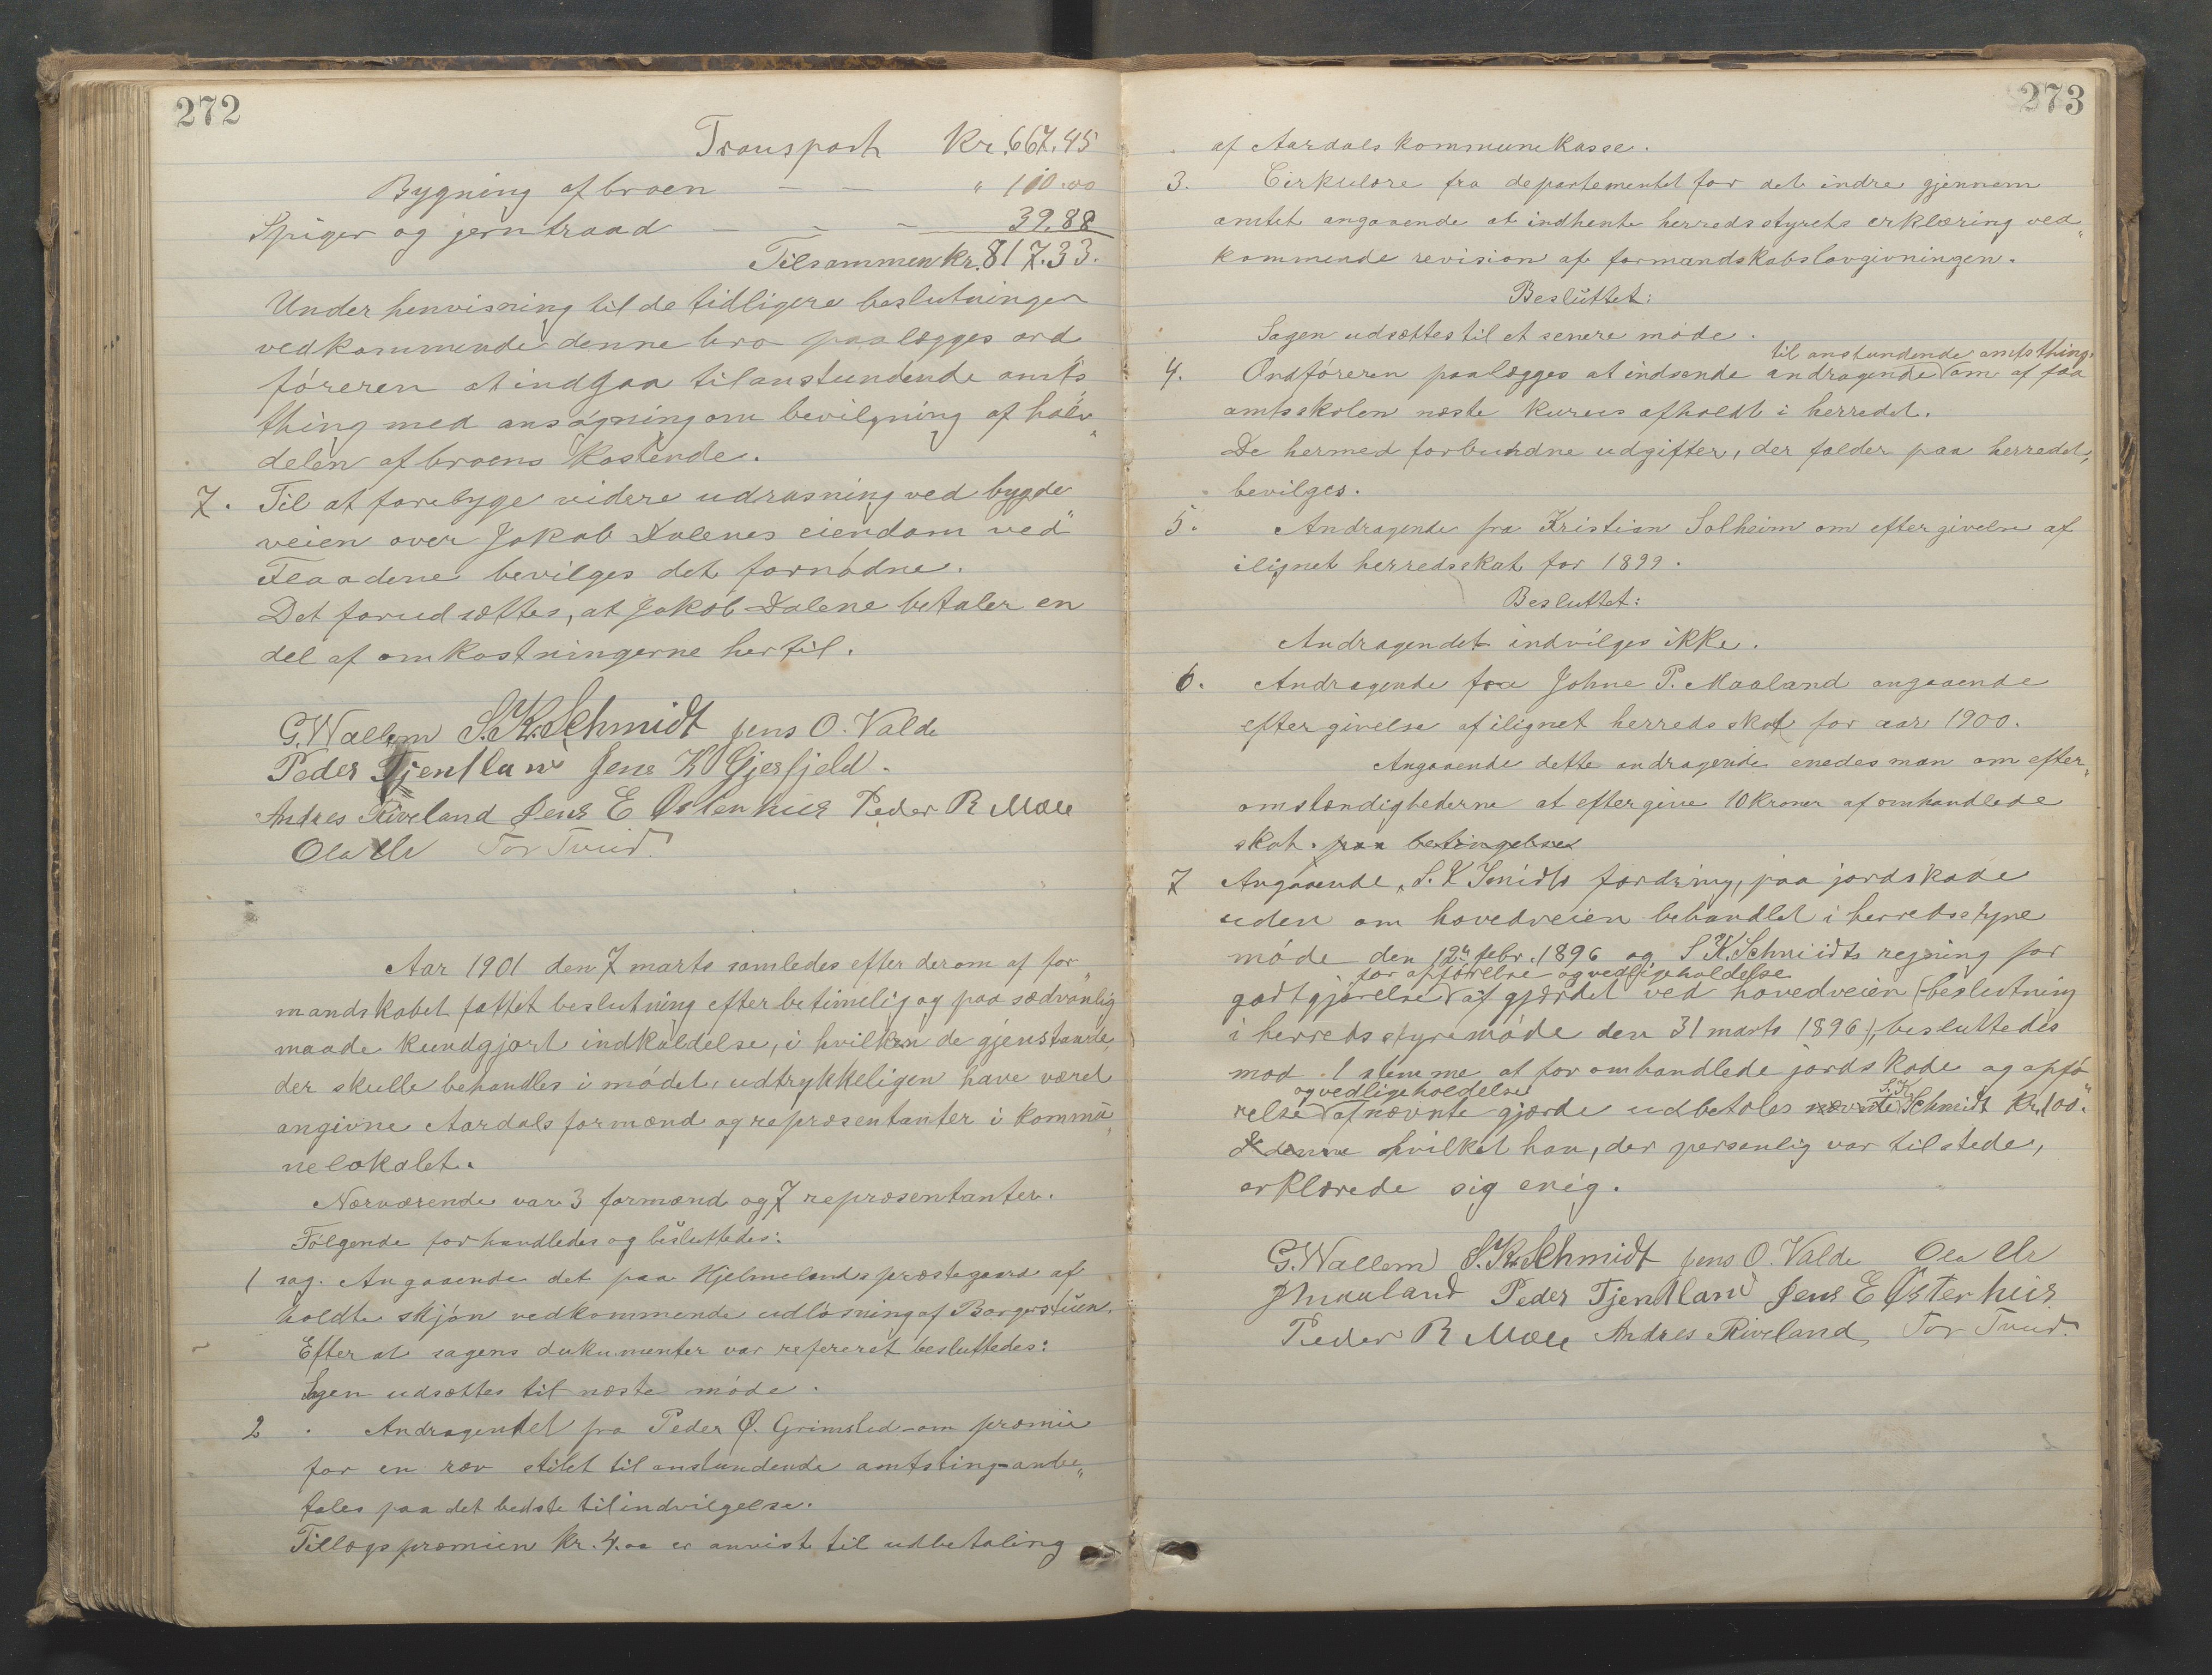 272
Transport Kr. 667.45
Bygning af broen — — " 110.00
Spiger og jerntraad — — — 39.88
Tilsammen kr. 817.33.
Under henvisning til de tidligere beslutninger
vedkommende denne bro paalægges ord
föreren at indgaa til anstundende amts"
thing med ansögning om bevilgning af halv"
delen af broens kostende.
7. Til at forebyge videre udrasning ved bygde"
veien over Jakob Dalenes eiendom ved
Flaadene bevilges det fornödne.
Det forudsættes, at Jakob Dalene betaler en
del af omkostningerne hertil.
G. Wallem S. K. Schmidt Jens O. Valde
Peder Tjentland Jens K Gjerfjeld.
Andres Riveland Jens E Østerhus Peder R Mæle
Ola Ur Tor Tveid.
Aar 1901 den 7 marts samledes efter derom af for"
mandskabet fattet beslutning efter betimelig og paa sædvanlig
maade kundgjort indkaldelse, i hvilken de gjenstande,
der skulle behandles i mödet, udtrykkeligen have været
angivne Aardals formænd og repræsentanter i kommu"
nelokalet.
Nærværende var 3 formænd og 7 repræsentanter.
Fölgende forhandledes og besluttedes:
1 sag. Angaaende det paa Hjelmelands præstegaard af
holdte skjön vedkommende udlösning af Borgerstuen.
Efter at sagens dokumenter var refereret besluttedes:
Sagen udsættes til næste möde.
2. Andragendet fra Peder Ø. Grimsled om præmie
for en ræv stilet til anstundende amtsting anbe"
fales paa det bedste til indvilgelse.
Tillægspræmien kr. 4.00 er anvist til udbetaling
273
af Aardals kommunekasse.
3. Cirkulære fra departementet for det indre gjennem
amtet angaaende at indhente herredsstyrets erklæring ved"
kommende revision af formandskabslovgivningen.
Besluttet:
Sagen udsættes til et senere möde.
til anstundende amtsthing
4. Ordföreren paalægges at indsende andragende om at faa
amtsskolen næste kursus afholdt i herredet.
De hermed forbundne udgifter, der falder paa herredet,
bevilges.
5. Andragende fra Kristian Solheim om eftergivelse af
ilignet herredsskat for 1899.
Besluttet:
Andragendet indvilges ikke.
6. Andragende fra Johne P. Maaland angaaende
eftergivelse af ilignet herredsskat for aar 1900.
Angaaende dette andragende enedes man om efter"
omstændighederne at eftergive 10 kroner af omhandlede
skat. paa betingelse
7 Angaaende S. K Smidts fordring, paa jordskade
uden om hovedveien behandlet i herredsstyre
möde den 12te febr. 1896 og S K. Schmidts regning for
for opförelse og vedligeholdelse
godtgjörelse af gjærdet ved hovedveien (beslutning
i herredsstyremöde den 31 marts 1896), besluttedes
mod 1 stemme at for omhandlede jordskade og opfö"
og vedligeholdelse
relse af nævnte gjærde udbetales nævnte S. K. Schmidt Kr. 100."
hvilket han, der personlig var tilstede,
erklærede sig enig.
G. Wallem S. K. Schmidt Jens O. Valde Ola Ur
Peder Tjentland Jens E Østerhus
Peder R Mæle Andres Riveland Tor Tveid.